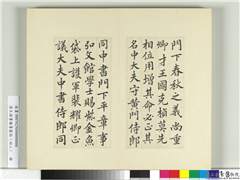 門下春秋之義尚重
卿才王國克楨莫先
相位用增其命必正其
名中大夫守黃門侍郎
同中書門下平章事
弘文館學士賜紫金魚
袋上護軍裴耀卿正
議大夫中書侍郎同